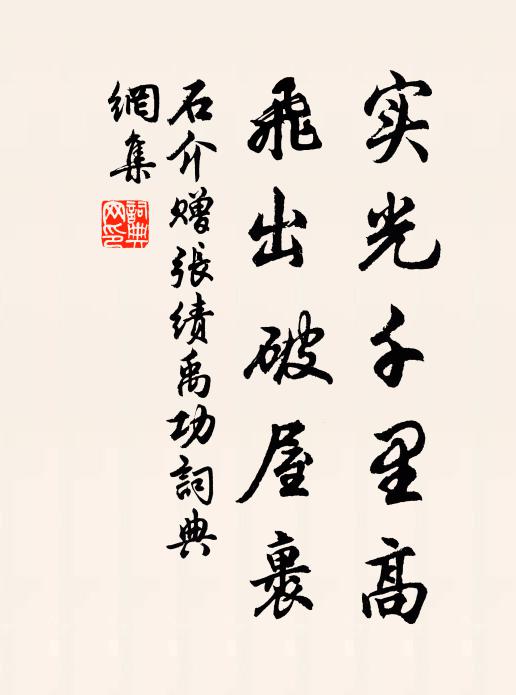 实光千里高
飛出破屋裹
石介贈張績禹功詞典
網集
詞典
网印